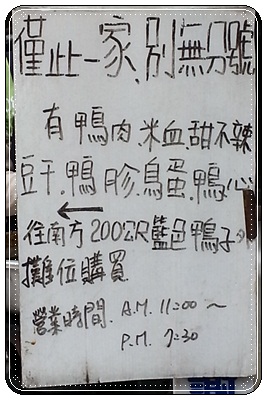 僅止一家、別無分號
有鴨肉.米血甜不辣
豆干.鴨胗.鳥蛋.鴨心
←
往南方200公尺藍色鴨子
攤位購買
營業時間. A.M. 11:00～
P.M. 7:30